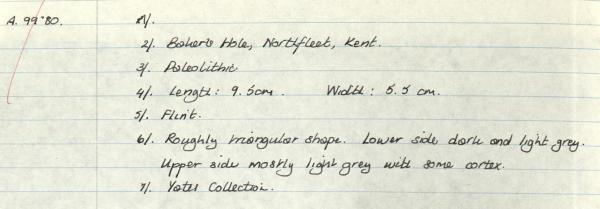 A. 99'80. 1/.
2/. Baker's Hole, Northfleet, Kent.
3/. Paleolithic
4/. Length: 9.5cm. Width: 5.5 cm.
5/. Flint.
6/. Roughly triangular shape. Lower side dark and light grey.
Upper side mostly light grey with some cortex.
7/. Yates Collection.